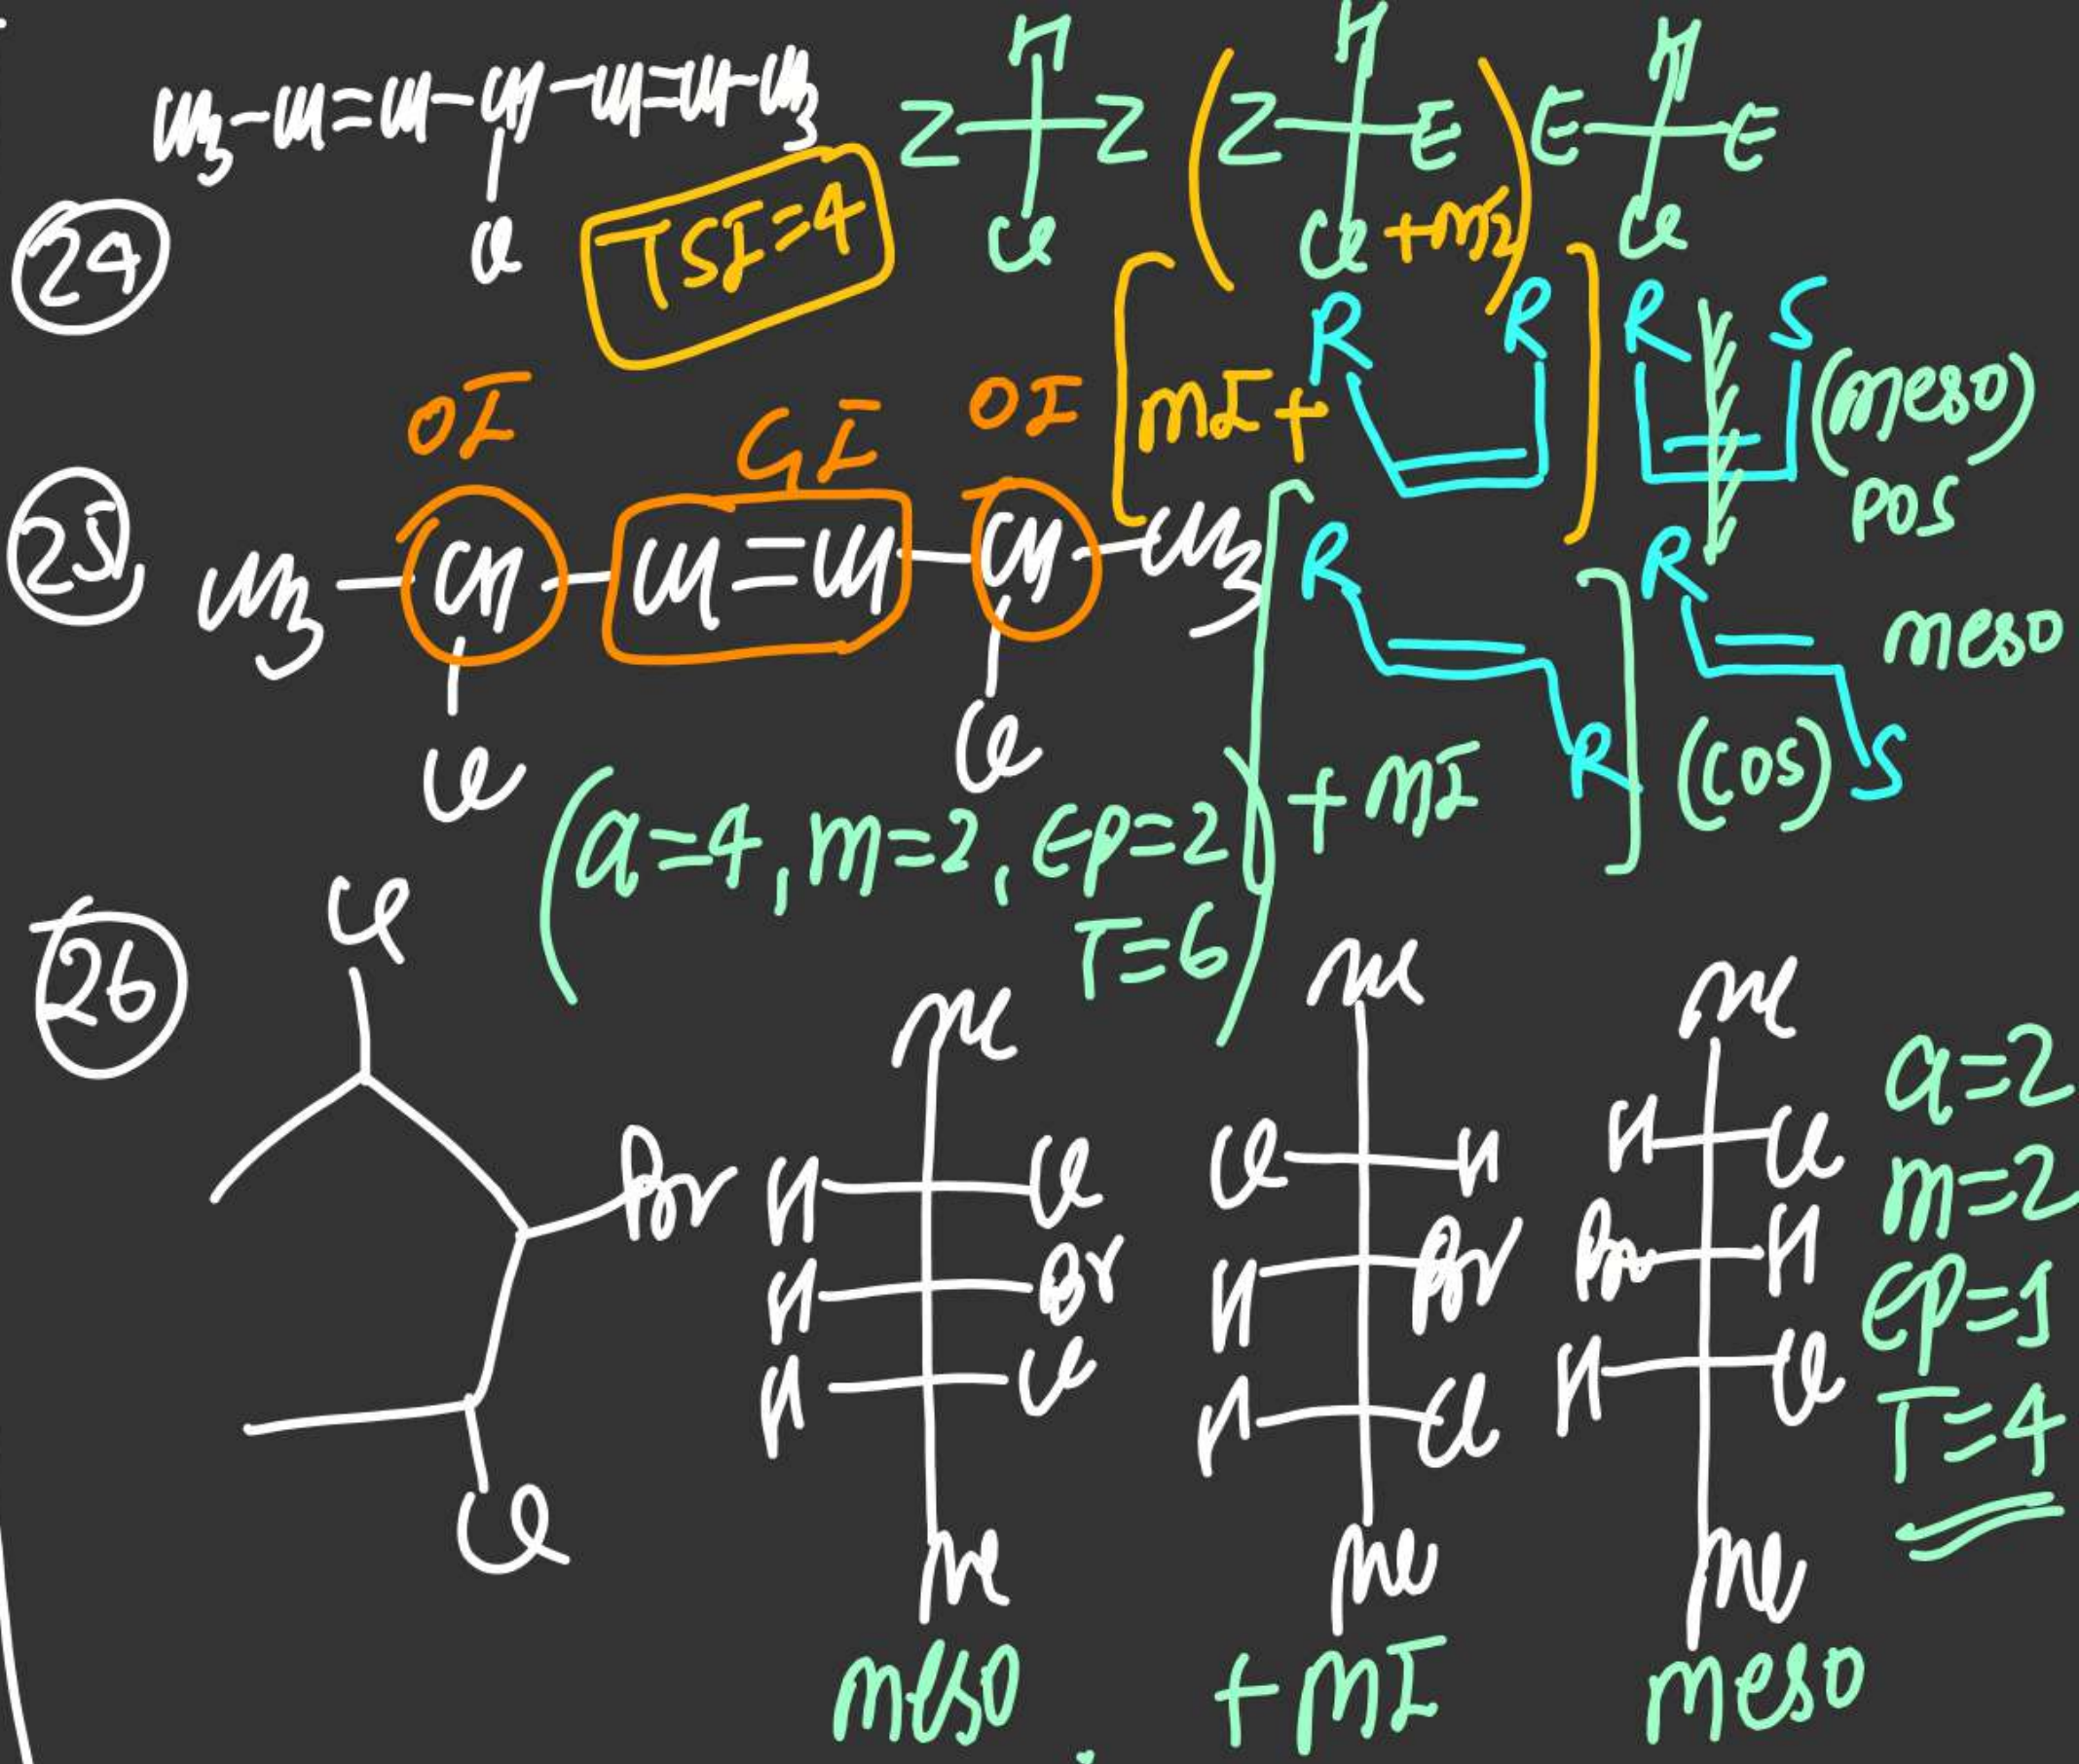 24
CH3-CH=CH-CH-CH=CH-CH3
Cl
TSI=4
H
Z Z
Cl
(Z H E)
Cl +mI
H
E E
Cl
25
OI GI OI
CH3-CH-CH=CH-CH-CH3
Cl Cl
[mI+ R R]
R S (meso)
POS
[R R] +mI
R S meso
(COS)
(a=4, m=2, EP=2
T=6)
26
Cl
Br
Cl
Me
H Cl
H Br
H Cl
Me
meso
Me
Cl H
H Br
H Cl
Me
+mI
Me
H Cl
Br H
H Cl
Me
meso
a=2
m=2
EP=1
T=4